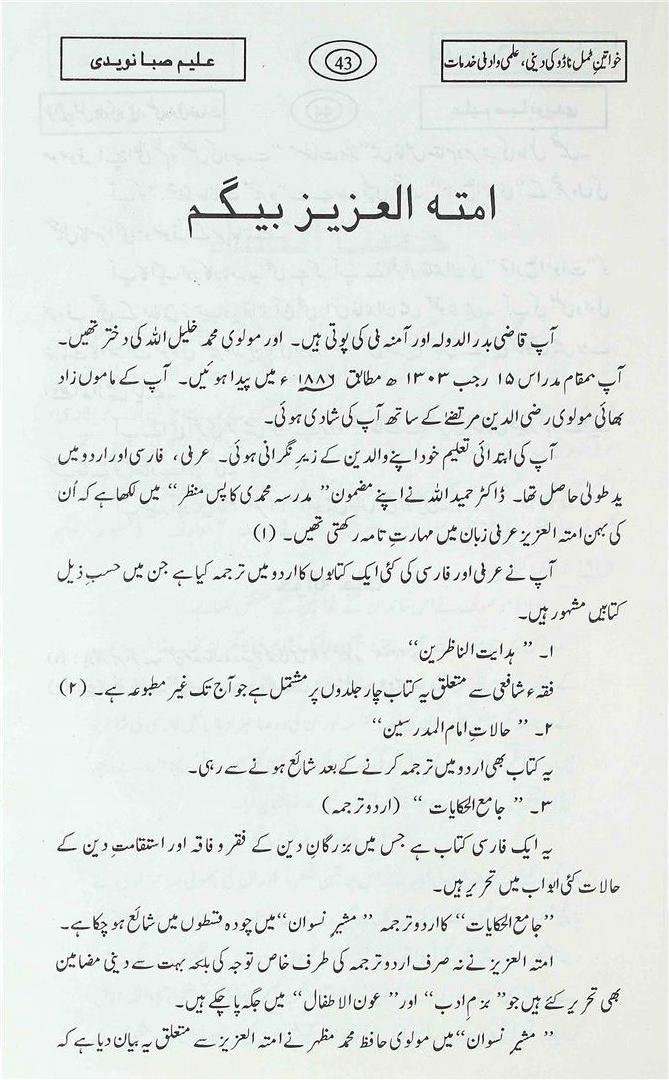 خواتینِ ٹمل ناڈو کی دینی، علمی و ادبی خدمات
43
علیم صبا نویدی
امتہ العزیز بیگم
آپ قاضی بدر الدولہ اور آمنہ بی کی پوتی ہیں۔ اور مولوی محمد خلیل اللہ کی دختر تھیں۔
آپ بمقام مدراس ۱۵ رجب ۱۳۰۳ ھ مطابق ۱۸۸۶ ء میں پیدا ہوئیں۔ آپ کے ماموں زاد
بھائی مولوی رضی الدین مرتضےٰ کے ساتھ آپ کی شادی ہوئی۔
آپ کی ابتدائی تعلیم خود اپنے والدین کے زیرِ نگرانی ہوئی۔ عربی، فارسی اور اردو میں
ید طولیٰ حاصل تھا۔ ڈاکٹر حمید اللہ نے اپنے مضمون” مدرسہ محمدی کا پس منظر “ میں لکھا ہے کہ اُن
کی بہن امتہ العزیز عربی زبان میں مہارتِ تامہ رکھتی تھیں۔ (۱)
آپ نے عربی اور فارسی کی کئی ایک کتابوں کا اردو میں ترجمہ کیا ہے جن میں حسبِ ذیل
کتابیں مشہور ہیں۔
۱۔ ” ہدایت الناظرین“
فقہء شافعی سے متعلق یہ کتاب چار جلدوں پر مشتمل ہے جو آج تک غیر مطبوعہ ہے۔ (۲)
۲۔ ” حالاتِ امام المدرسین“
یہ کتاب بھی اردو میں ترجمہ کرنے کے بعد شائع ہونے سے رہی۔
۳۔ ” جامع الحکایات “ (اردو ترجمہ)
یہ ایک فارسی کتاب ہے جس میں بزرگانِ دین کے فقر و فاقہ اور استقامتِ دین کے
حالات کئی ابواب میں تحریر ہیں۔
”جامع الحکایات“ کا اردو ترجمہ ” مشیرِ نسوان“ میں چودہ قسطوں میں شائع ہو چکا ہے۔
امتہ العزیز نے نہ صرف اردو ترجمہ کی طرف خاص توجہ کی بلکہ بہت سے دینی مضامین
بھی تحریر کئے ہیں جو” بزمِ ادب“ اور ”عون الاطفال“ میں جگہ پا چکے ہیں۔
” مشیرِ نسوان“ میں مولوی حافظ محمد مظہر نے امتہ العزیز سے متعلق یہ بیان دیا ہے کہ